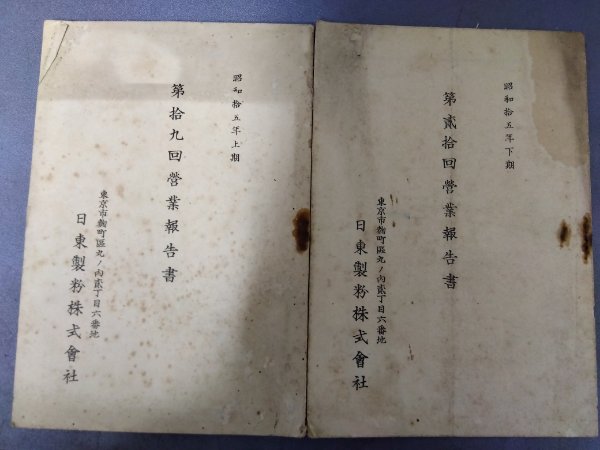 昭和拾五年上期
第拾九回營業報告書
東京市麹町區丸ノ內貳丁目六番地
日東製粉株式會社
昭和拾五年下期
第貳拾回營業報告書
東京市麹町區丸ノ內貳丁目六番地
日東製粉株式會社